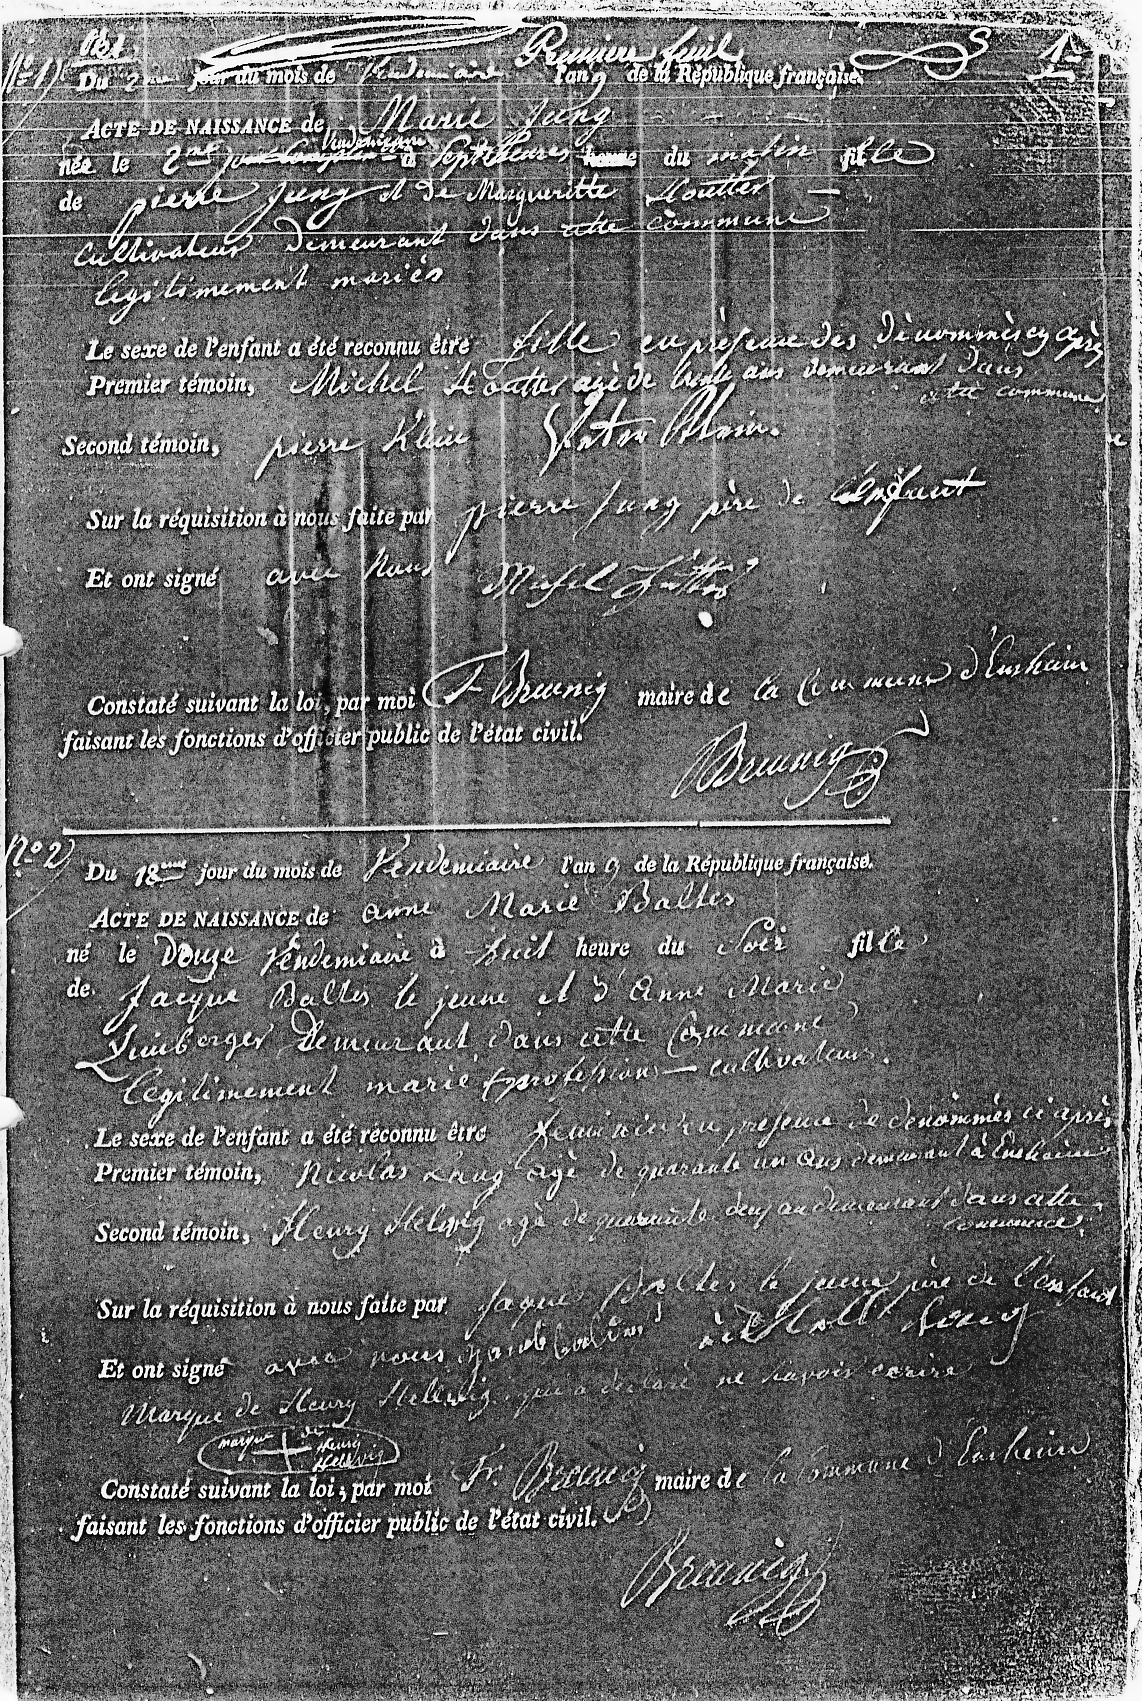 Premiere feuil
N.º 1) Du 2me jour du mois de Vendemiaire l'an 9 de la République française.
ACTE DE NAISSANCE de Marie Jung
née le 2me Vendemiaire à Sept heures heure du matin fille
de pierre Jung et de Margueritte Houtter
Cultivateur Demeurant dans cette commune
legitimement mariés
Le sexe de l'enfant a été reconnu être fille en présence des dénommés cy après
Premier témoin, Michel Houtter agé de trente ans demeurant dans
cette commune
Second témoin, pierre Klein
Sur la réquisition à nous faite par pierre Jung père de l'enfant
Et ont signé avec Nous
Constaté suivant la loi, par moi Fr Breunig maire de la Commune d'Ensheim
faisant les fonctions d'officier public de l'état civil.
Breunig
N.º 2) Du 18me jour du mois de Vendemiaire l'an 9 de la République française.
ACTE DE NAISSANCE de anne Marie Baltes
né le Douze Vendemiaire à huit heure du Soir fille
de Jacque Baltes le jeune et d'Anne Marie
Demeurant dans cette Commune
legitimement marié profession cultivateur.
Le sexe de l'enfant a été reconnu être feminin en presence de denommés ci après
Premier témoin, Nicolas Lang agé de quarante un ans demeurant à Ensheim
Second témoin, Henry Helwig agé de quarante deux an demeurant dans cette
commune.
Sur la réquisition à nous faite par Jaque Baltes le jeune père de l'enfant
Et ont signé avec nous
Marque de Henry Hellwig qui a declaré ne savoir ecrire
marque de Henrig Hellwig
Constaté suivant la loi, par moi Fr. Breunig maire de la Commune d'Ensheim
faisant les fonctions d'officier public de l'état civil.
Breunig